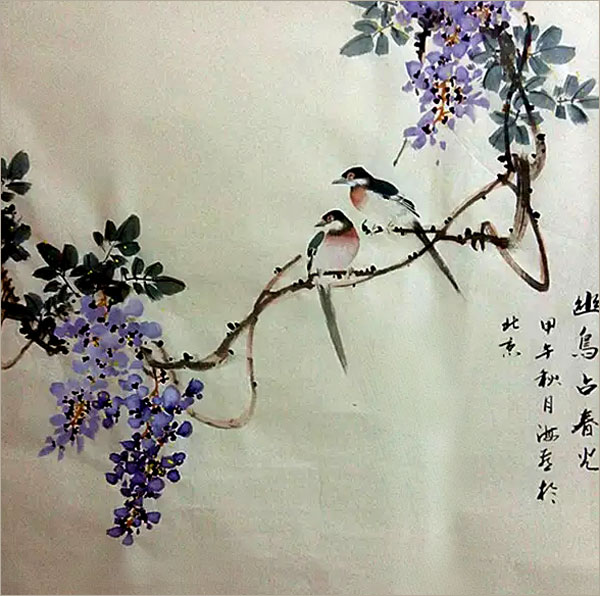 幽鳥占春光
甲午秋月海於
北京